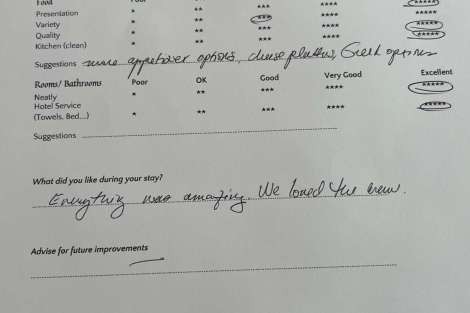 Food Poor
Presentation * ** *** **** *****
Variety * ** *** **** *****
Quality * ** *** **** *****
Kitchen (clean) * ** *** **** *****
Suggestions more appetizer options, cheese platters, Greek options
Rooms/ Bathrooms Poor OK Good Very Good Excellent
Neatly * ** *** **** *****
Hotel Service
(Towels, Bed...) * ** *** **** *****
Suggestions
What did you like during your stay?
Everything was amazing. We loved the crew.
Advise for future improvements